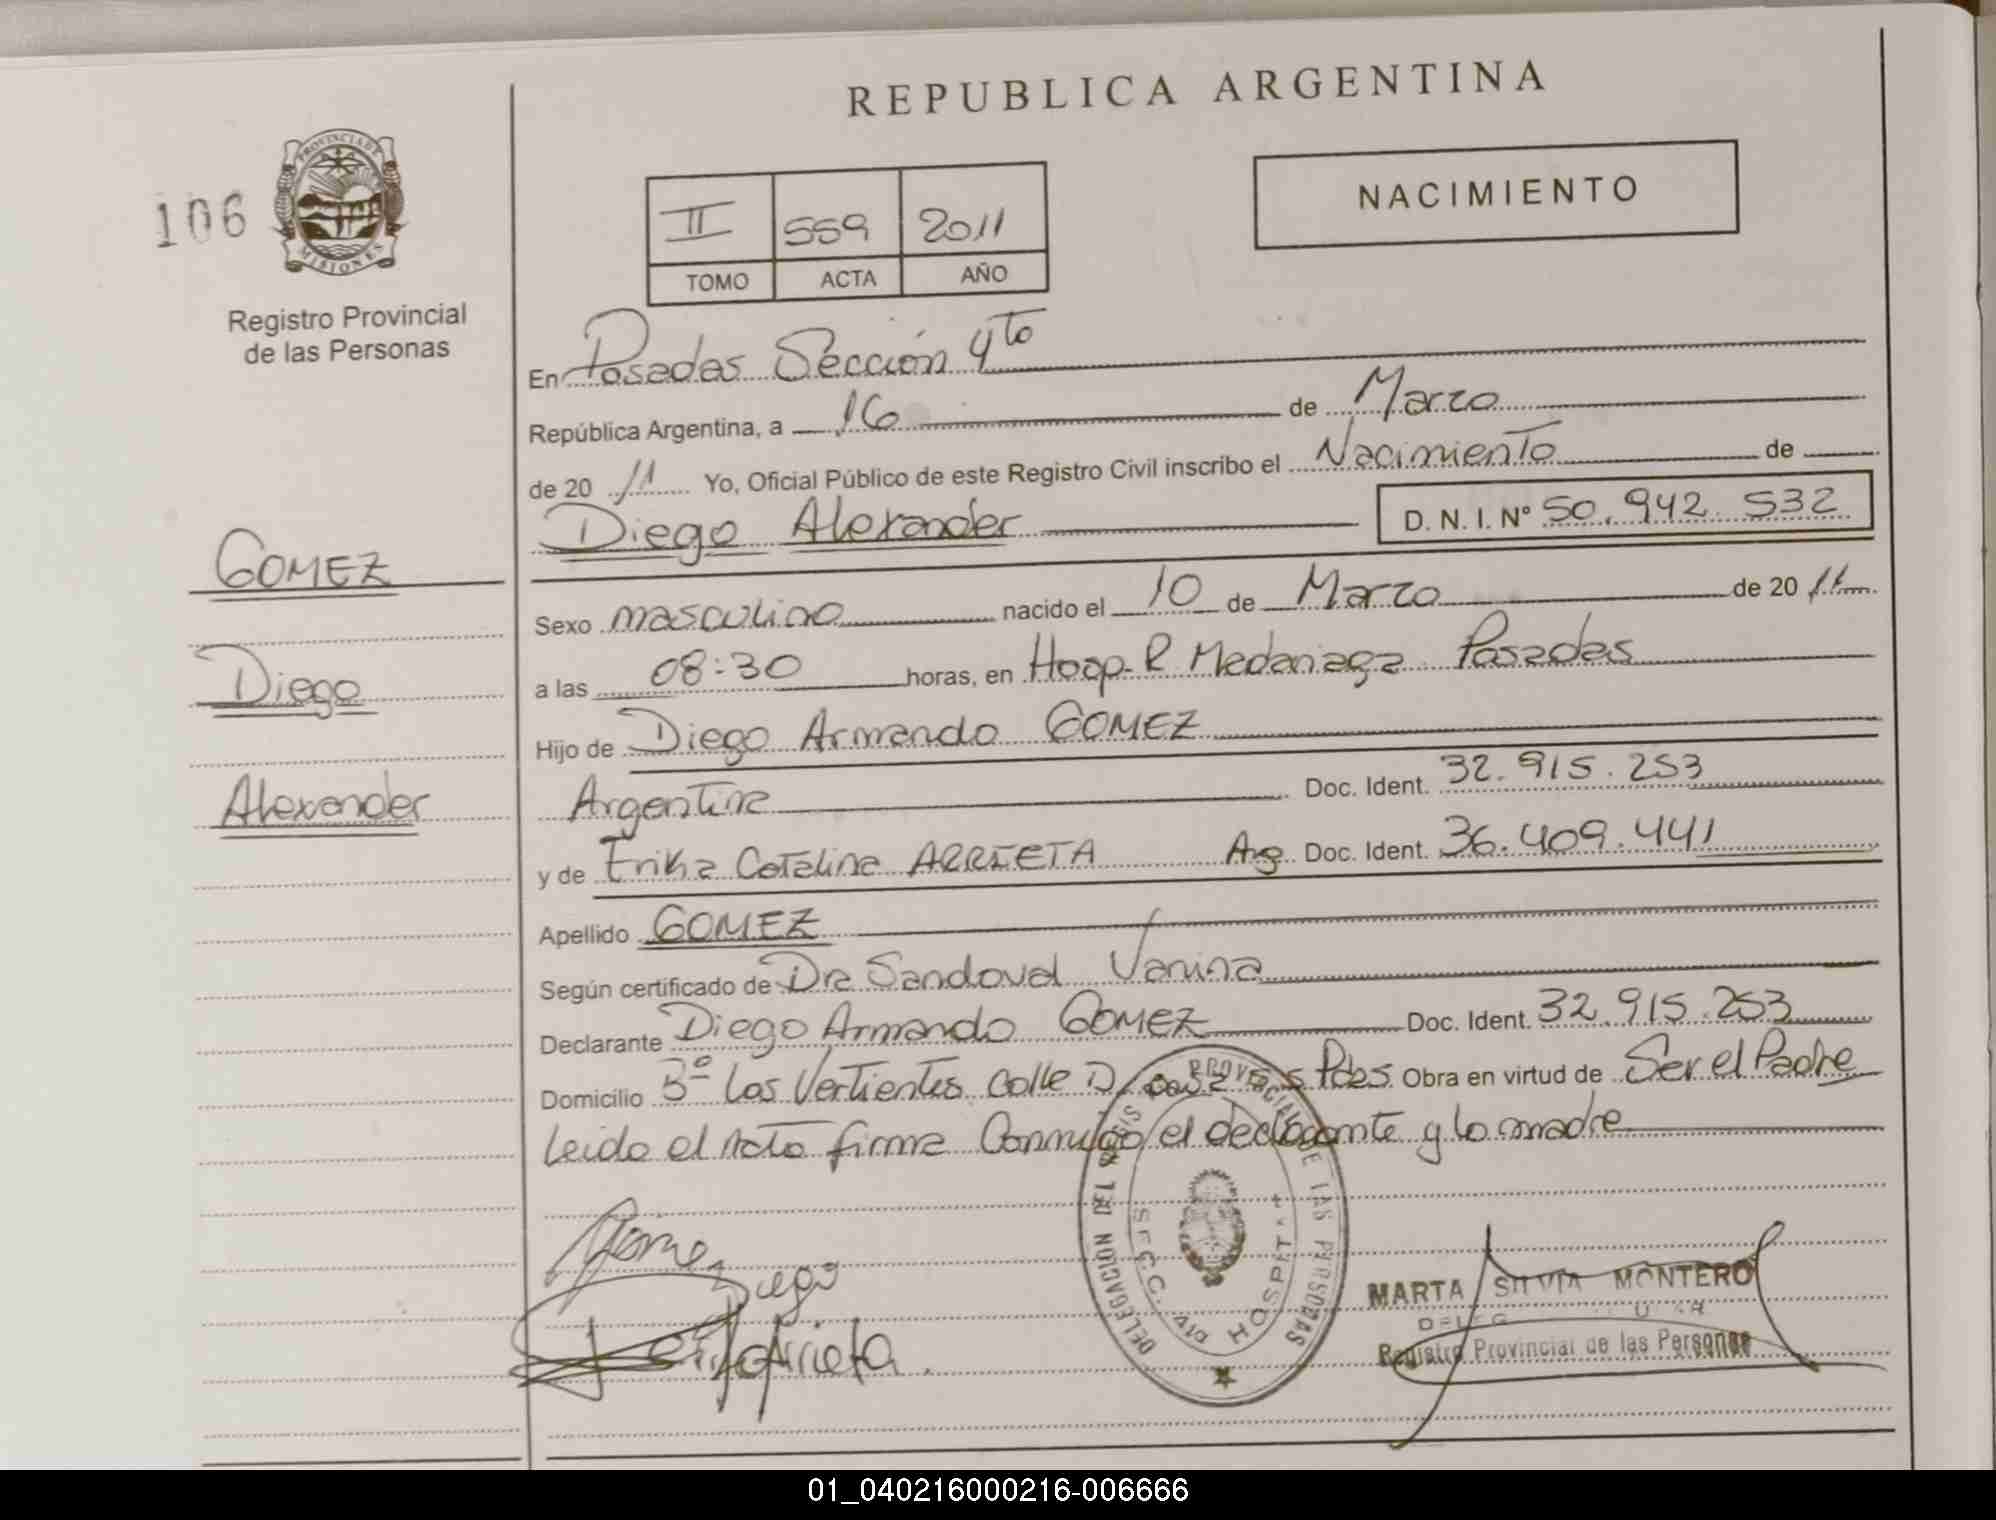 REPUBLICA ARGENTINA
106
PROVINCIA DE
MISIONES
Registro Provincial
de las Personas
II 559 2011
TOMO ACTA AÑO
NACIMIENTO
En Posadas Sección 4to
República Argentina, a 16 de Marzo
de 20 11 Yo, Oficial Público de este Registro Civil inscribo el Nacimiento de
Diego Alexander D. N. I. Nº 50.942.532
GOMEZ
Diego
Alexander
Sexo masculino nacido el 10 de Marzo de 20 11
a las 08:30 horas, en Hosp. R Madariaga Posadas
Hijo de Diego Armando GOMEZ
Argentina Doc. Ident. 32.915.253
y de Erika Catalina ARRIETA Arg Doc. Ident. 36.409.441
Apellido GOMEZ
Según certificado de Dra Sandoval Vanina
Declarante Diego Armando GOMEZ Doc. Ident. 32.915.253
Domicilio Bº Las Vertientes Calle D Pdas Obra en virtud de Ser el Padre
Leida el Acta firma Conmigo el declarante y la madre
Gomez Diego
Arrieta
PROVINCIAL DE LAS PERSONAS
DELEGACION
SECC. 4ta HOSPITAL
MARTA SILVIA MONTERO
Registro Provincial de las Personas
01_040216000216-006666